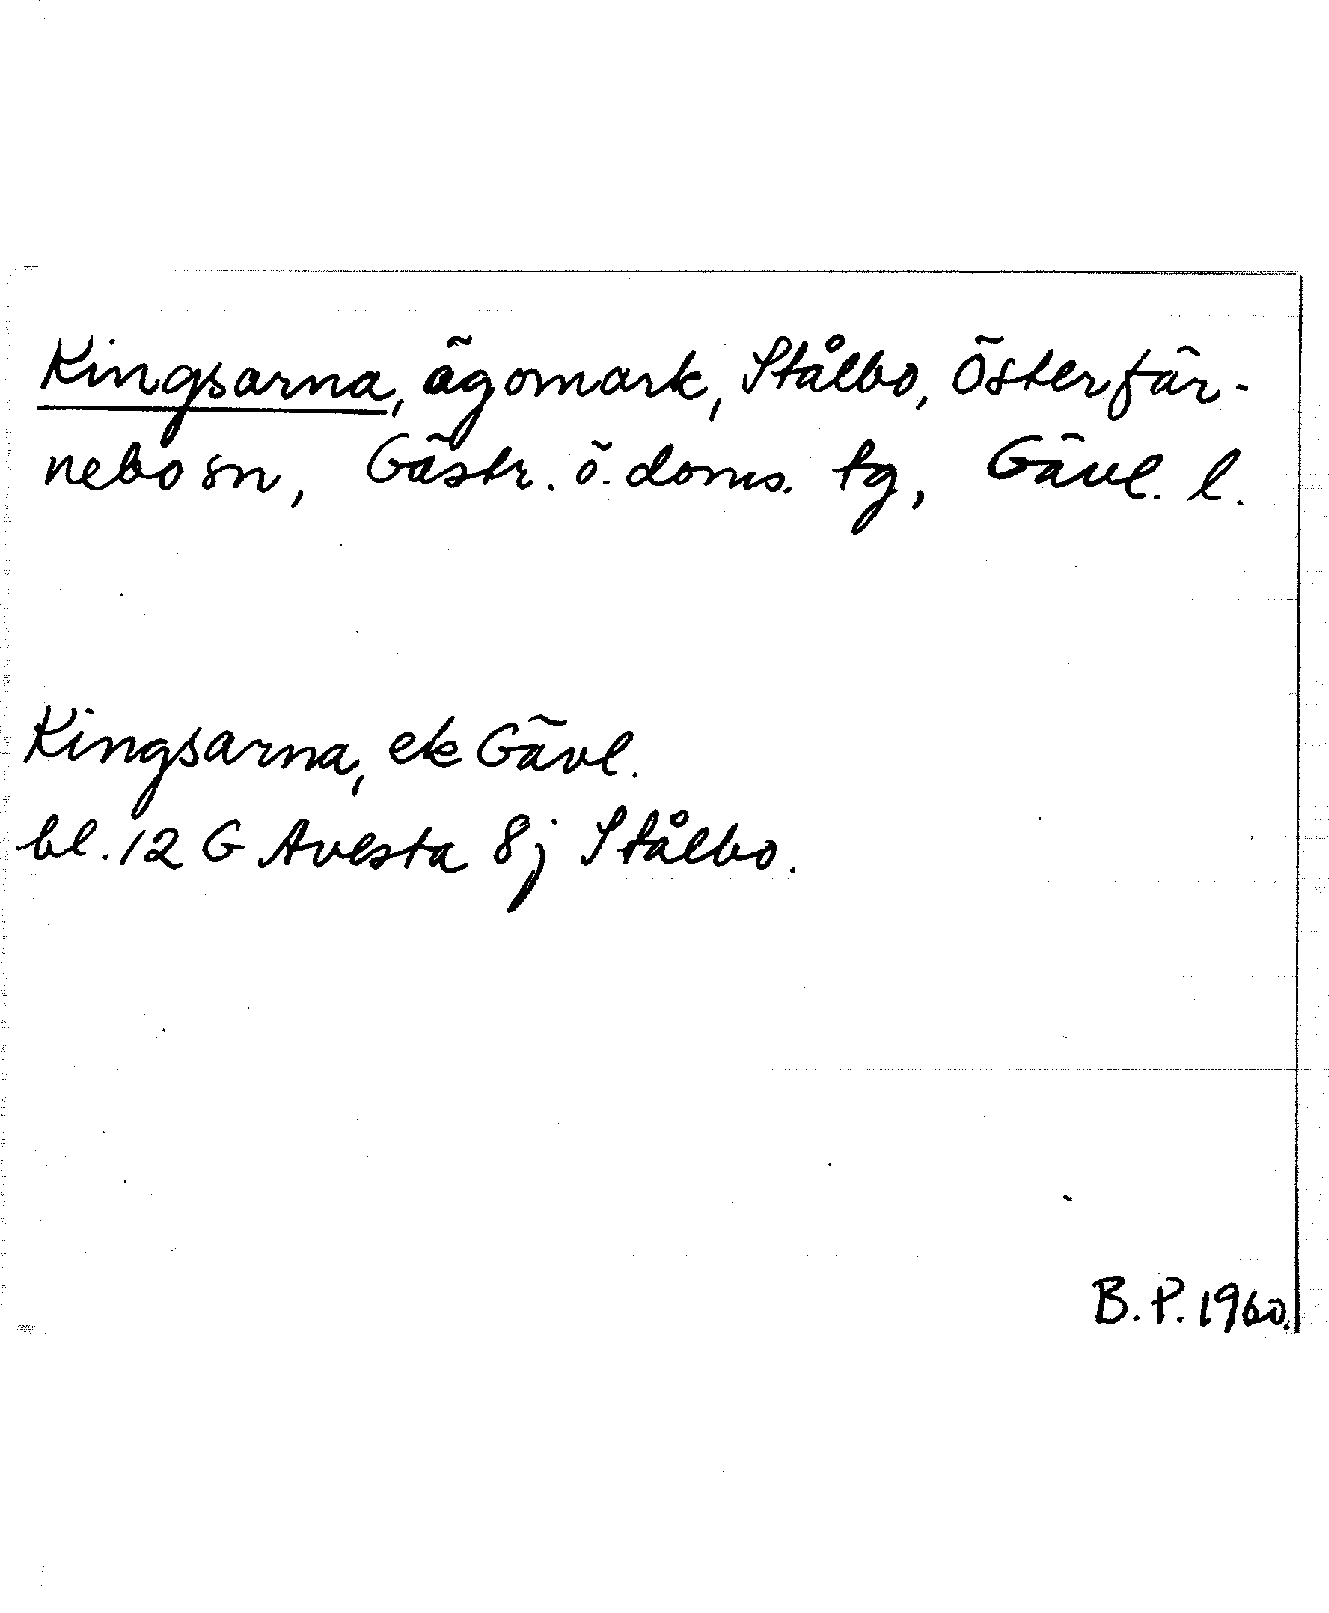 Kingsarna, ägomark, Stålbo, Österfär-
nebo sn, Gästr. ö. doms. tg, Gävl. l.
Kingsarna, ek Gävl.
bl. 12 G Avesta 8j Stålbo.
B.P. 1960.